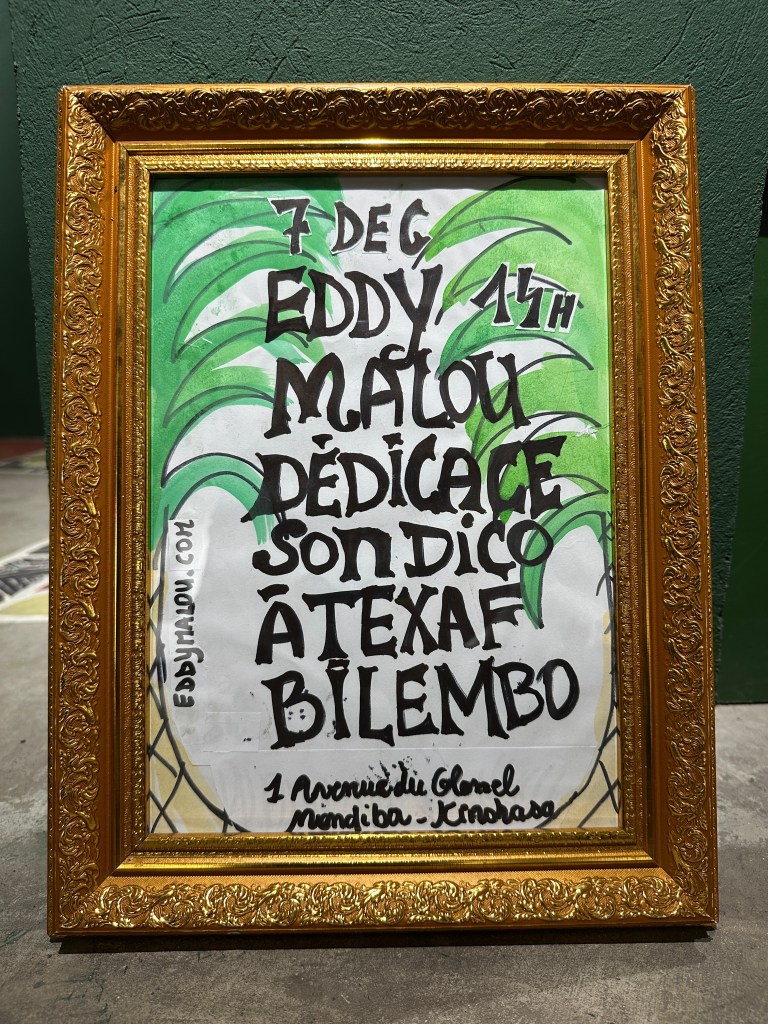 7 DEC
EDDY
14H
MALOU
DÉDICACE
SON DICO
À TEXAF
BILEMBO
EDDYMALOU.COM
1 Avenue du Colonel
Mondjiba - Kinshasa